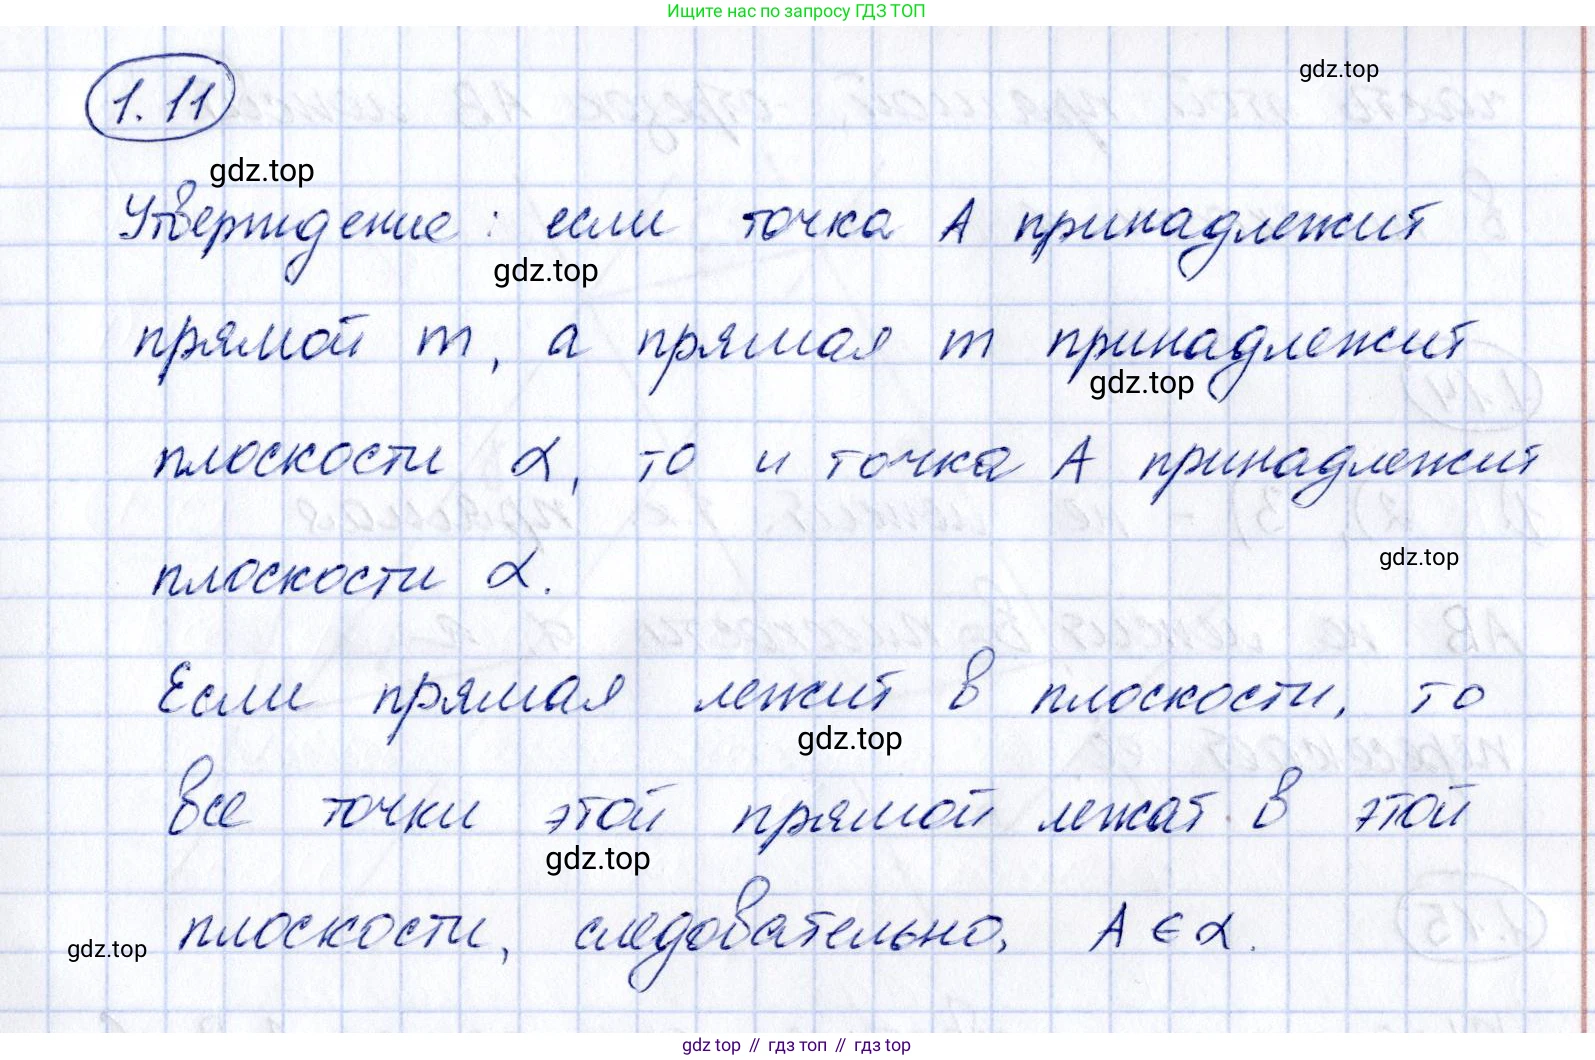 Ищите нас по запросу ГДЗ ТОП
gdz.top
1.11
gdz.top
Утверждение: если точка A принадлежит
gdz.top
прямой m, а прямая m принадлежит
gdz.top
плоскости α, то и точка A принадлежит
плоскости α.
gdz.top
Если прямая лежит в плоскости, то
gdz.top
все точки этой прямой лежат в этой
gdz.top
плоскости, следовательно, A ∈ α.
gdz.top
gdz top // гдз топ // гдз top